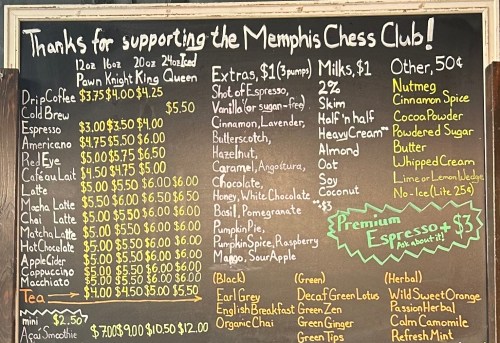 Thanks for supporting the Memphis Chess Club!
12oz 16oz 20oz 24oz Iced
Pawn Knight King Queen
Drip Coffee $3.75 $4.00 $4.25
Cold Brew $5.50
Espresso $3.00 $3.50 $4.00
Americano $4.75 $5.50 $6.00
Red Eye $5.00 $5.75 $6.50
Café au Lait $4.50 $4.75 $5.00
Latte $5.00 $5.50 $6.00 $6.00
Mocha Latte $5.50 $6.00 $6.50 $6.50
Chai Latte $5.00 $5.50 $6.00 $6.00
Matcha Latte $5.00 $5.50 $6.00 $6.00
Hot Chocolate $5.00 $5.50 $6.00 $6.00
Apple Cider $5.00 $5.50 $6.00 $6.00
Cappuccino $5.00 $5.50 $6.00 $6.00
Macchiato $5.00 $5.50 $6.00 $6.00
Tea $4.00 $4.50 $5.00 $5.50
mini $2.50
Açaí Smoothie $7.00 $9.00 $10.50 $12.00
Extras, $1 (3 pumps)
Shot of Espresso,
Vanilla (or sugar-free)
Cinnamon, Lavender,
Butterscotch,
Hazelnut,
Caramel, Angostura,
Chocolate,
Honey, White Chocolate
Basil, Pomegranate
Pumpkin Pie,
Pumpkin Spice, Raspberry
Mango, Sour Apple
Milks, $1
2%
Skim
Half 'n half
Heavy Cream**
Almond
Oat
Soy
Coconut
**$3
Other, 50¢
Nutmeg
Cinnamon Spice
Cocoa Powder
Powdered Sugar
Butter
Whipped Cream
Lime or Lemon Wedge
No-Ice (Lite 25¢)
Premium
Espresso + $3
Ask about it!
(Black)
Earl Grey
English Breakfast
Organic Chai
(Green)
Decaf Green Lotus
Green Zen
Green Ginger
Green Tips
(Herbal)
Wild Sweet Orange
Passion Herbal
Calm Camomile
Refresh Mint